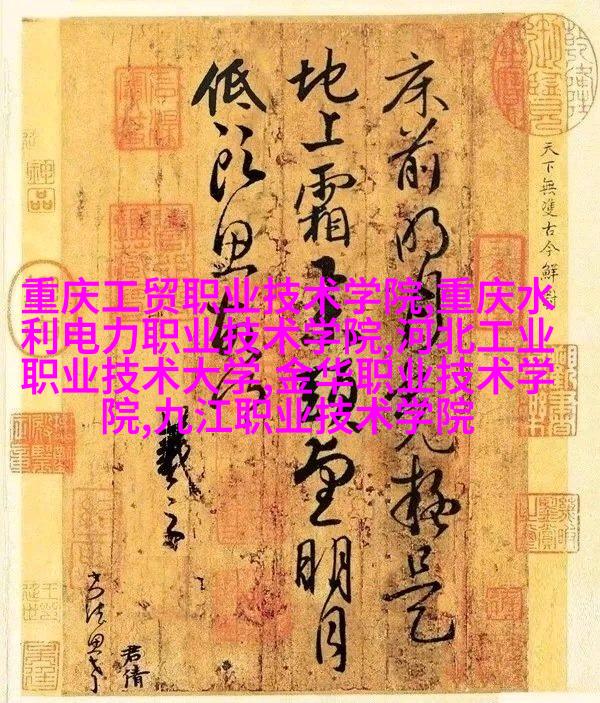 重庆工贸职业技术学院,重庆水
利电力职业技术学院,河北工业
职业技术大学,金华职业技术学
院,九江职业技术学院
天下無雙古今鮮對
床前明月光疑是
地上霜举头望明月
低头思故乡
羲之
君倩
神品